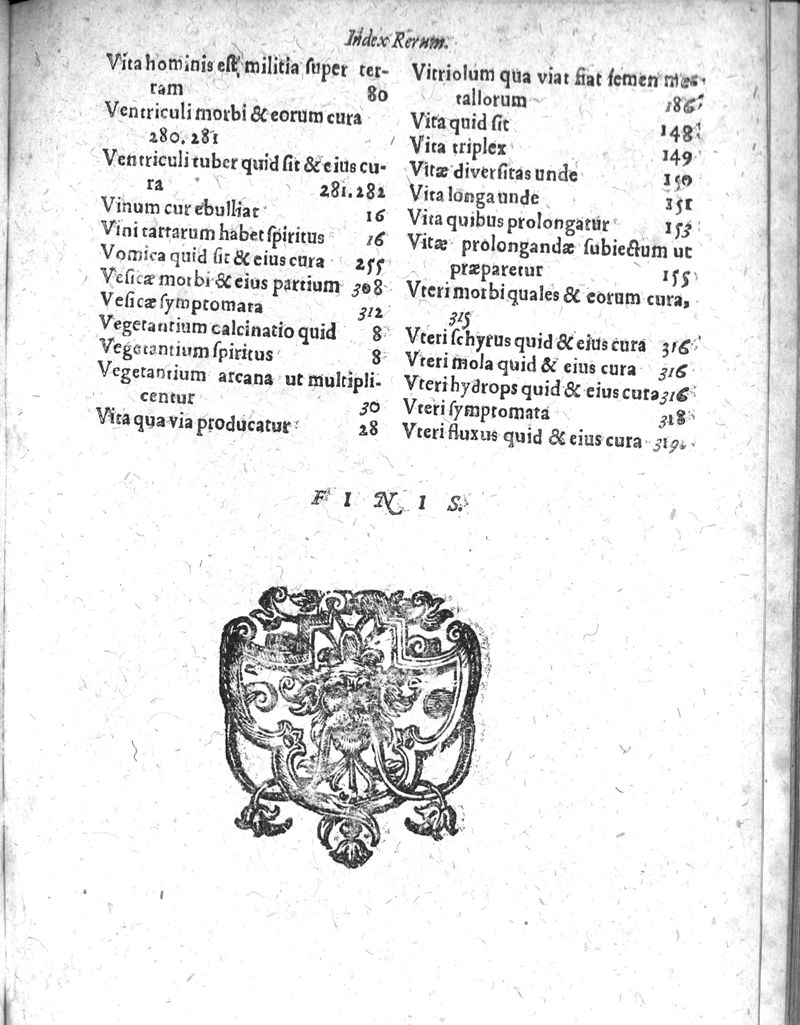 Index Rerum.
Vita hominis est, militia super ter-
ram 80
Ventriculi morbi & eorum cura
280. 281
Ventriculi tuber quid sit & eius cu-
ra 281. 282
Vinum cur ebulliat 16
Vini tartarum habet spiritus 16
Vomica quid sit & eius cura 255
Vesicæ morbi & eius partium 308
Vesicæ symptomata 312
Vegetantium calcinatio quid 8
Vegetantium spiritus 8
Vegetantium arcana ut multipli-
centur 30
Vita qua via producatur 28
Vitriolum qua viat fiat semen me-
tallorum 186
Vita quid sit 148
Vita triplex 149
Vitæ diversitas unde 150
Vita longa unde 151
Vita quibus prolongatur 153
Vitæ prolongandæ subiectum ut
præparetur 155
Vteri morbi quales & eorum cura,
315
Vteri schyrus quid & eius cura 316
Vteri mola quid & eius cura 316
Vteri hydrops quid & eius cura 316
Vteri symptomata 318
Vteri fluxus quid & eius cura 319.
FINIS.